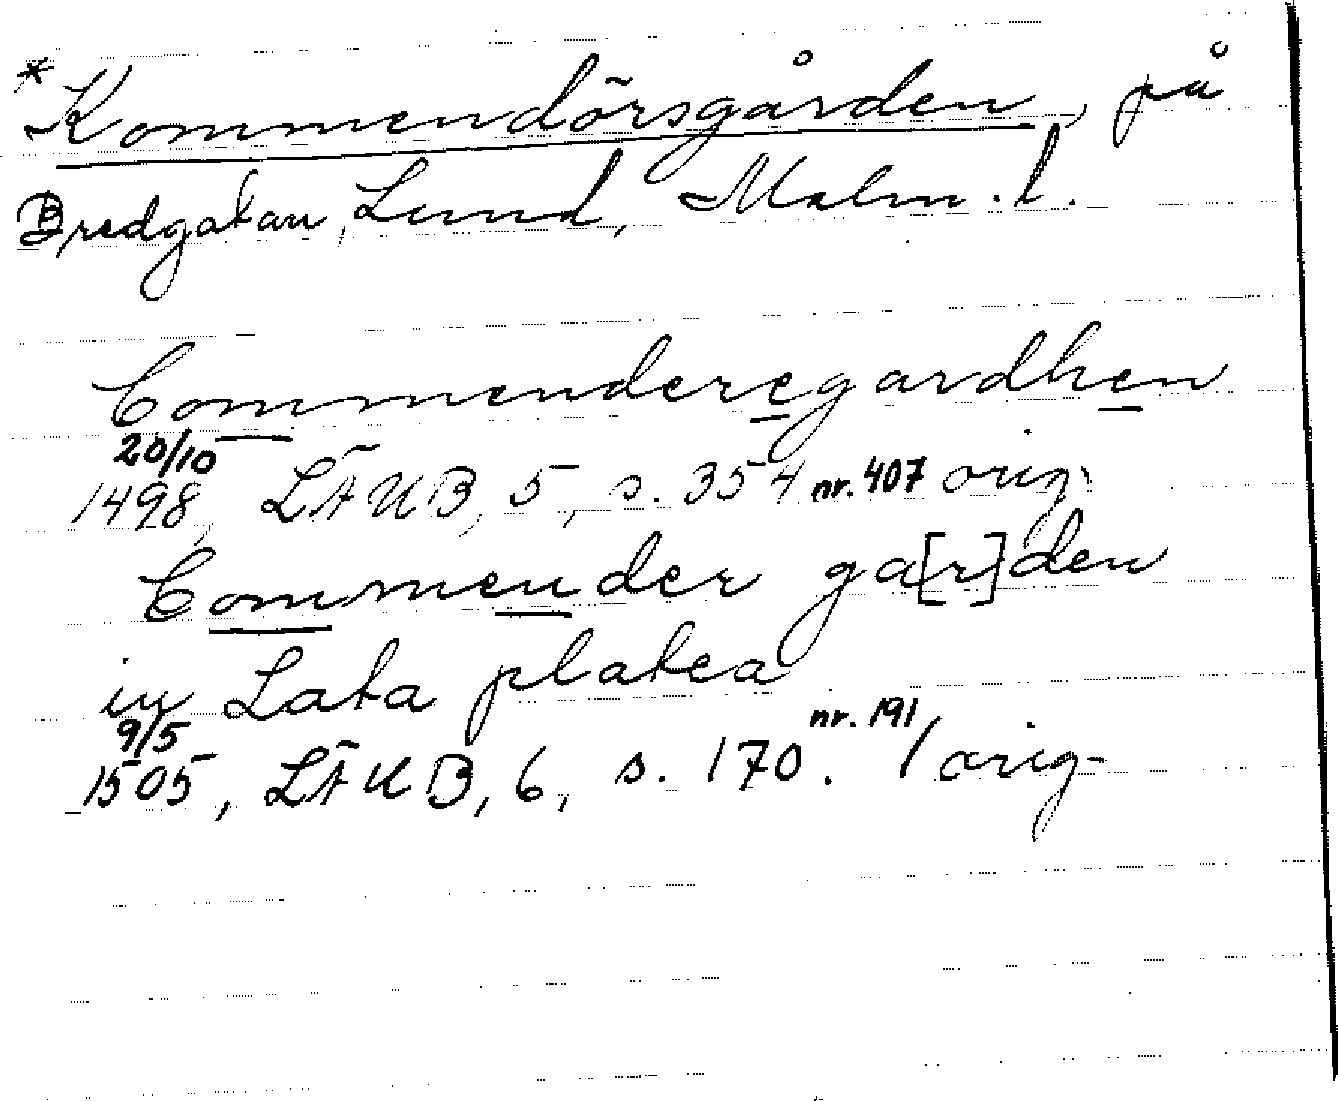 *Kommendörsgården, på
Bredgatan, Lund, Malm. l.
Commenderegardhen
20/10
1498, LÄUB, 5, s. 354 nr. 407 orig.
Commender ga[r]den
in Lata platea
9/5
1505, LÄUB, 6, s. 170. nr. 191/orig.